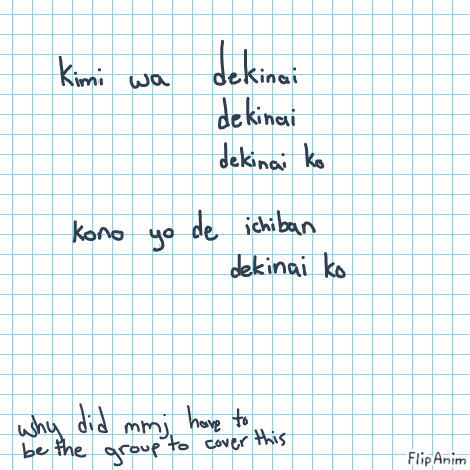 kimi wa dekinai
dekinai
dekinai ko
kono yo de ichiban
dekinai ko
why did mmj have to
be the group to cover this
FlipAnim